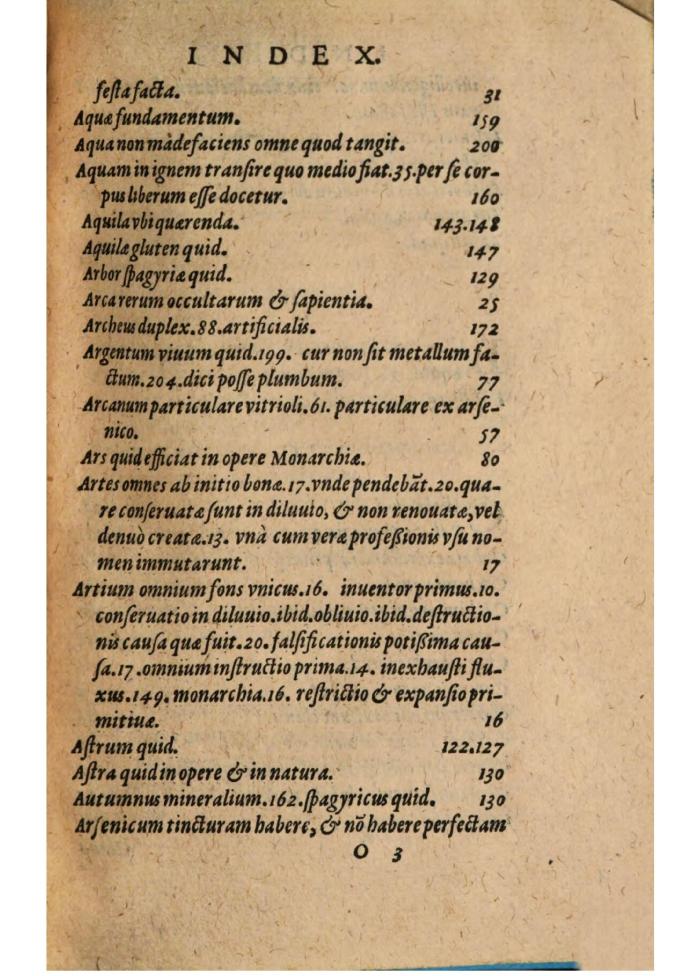 INDEX.
festa facta. 31
Aquæ fundamentum. 159
Aqua non màdefaciens omne quod tangit. 200
Aquam in ignem transire quo medio fiat. 35. per se cor-
pus liberum esse docetur. 160
Aquila vbi quærenda. 143.148
Aquilæ gluten quid. 147
Arbor spagyriæ quid. 129
Arca rerum occultarum & sapientia. 25
Archeus duplex. 88. artificialis. 172
Argentum viuum quid. 199. cur non sit metallum fa-
ctum. 204. dici posse plumbum. 77
Arcanum particulare vitrioli. 61. particulare ex arse-
nico. 57
Ars quid efficiat in opere Monarchiæ. 80
Artes omnes ab initio bonæ. 17. vnde pendebāt. 20. qua-
re conseruatæ sunt in diluuio, & non renouatæ, vel
denuò creatæ. 13. vnà cum veræ professionis vsu no-
men immutarunt. 17
Artium omnium fons vnicus. 16. inuentor primus. 10.
conseruatio in diluuio. ibid. obliuio. ibid. destructio-
nis causa quæ fuit. 20. falsificationis potissima cau-
sa. 17. omnium instructio prima. 14. inexhausti flu-
xus. 149. monarchia. 16. restrictio & expansio pri-
mitiuæ. 16
Astrum quid. 122.127
Astra quid in opere & in natura. 130
Autumnus mineralium. 162. spagyricus quid. 130
Arsenicum tincturam habere, & nō habere perfectam
O 3